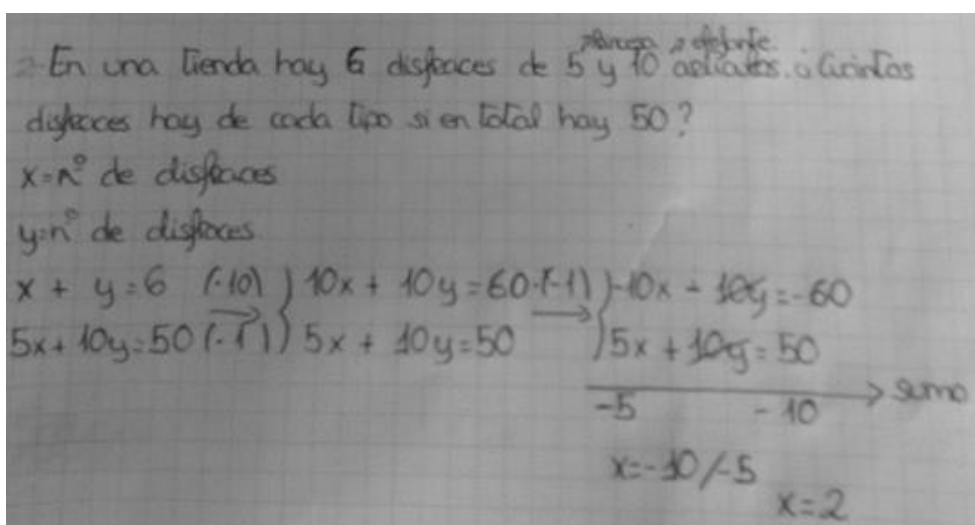 2-En una tienda hay 6 disfraces de 5 y 10
disfraces hay de cada tipo si en total hay 50?
x=nº de disfraces
y=nº de disfraces
x + y=6 (·10) ) 10x + 10y=60·(-1) ) -10x - 10y=-60
5x+10y=50 (·1) ) 5x + 10y=50 ) 5x + 10y=50
-5 -10 → sumo
x=-10/-5
x=2